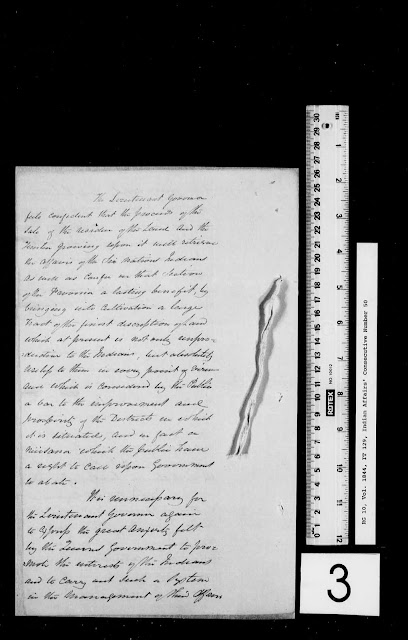 The Lieutenant Governor
feels confident that the proceeds of the
Sale of the residue of the Land and the
Timber growing upon it will retrieve
the affairs of the Six Nations Indians
as well as confer on that Section
of the Province a lasting benefit, by
bringing into Cultivation a large
Tract of the finest description of land
which at present is not only unpro-
ductive to the Indians, but absolutely
useless to them in every point of view
and which is considered by the Public
a bar to the improvement and
prosperity of the Districts in which
it is situated, and in fact a
nuisance which the public have
a right to call upon Government
to abate.
It is unnecessary for
the Lieutenant Governor again
to express the great anxiety felt
by the Government to pro-
mote the interests of the Indians
and to carry out such a System
in the Management of their Affairs
RG 10, Vol. 1844, IT 129, Indian Affairs' Consecutive Number 50
ROTEX
3
0 1 2 3 4 5 6 7 8 9 10 11 12 13 14 15 16 17 18 19 20 21 22 23 24 25 26 27 28 29 30
1 2 3 4 5 6 7 8 9 10 11 12